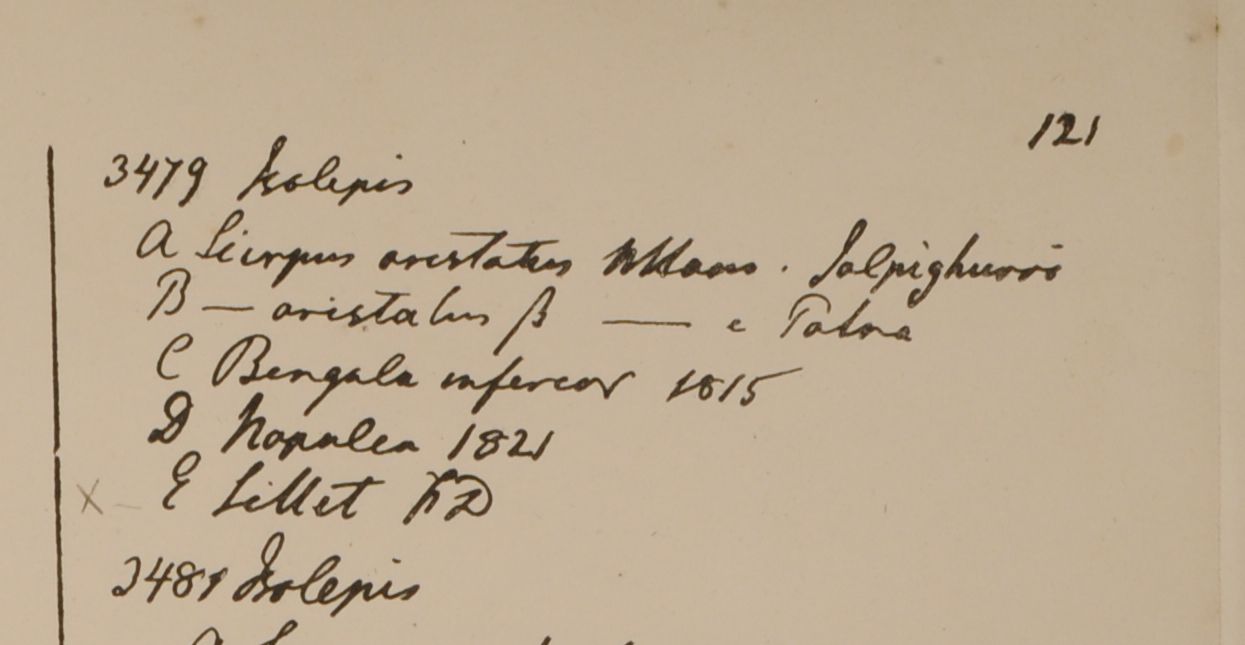 121
3479 Isolepis
A Scirpus aristatus . Jalpighurri
B — aristatus β — e Patna
C Bengala inferior 1815
D Napalea 1821
X – E Sillet FD
3481 Isolepis